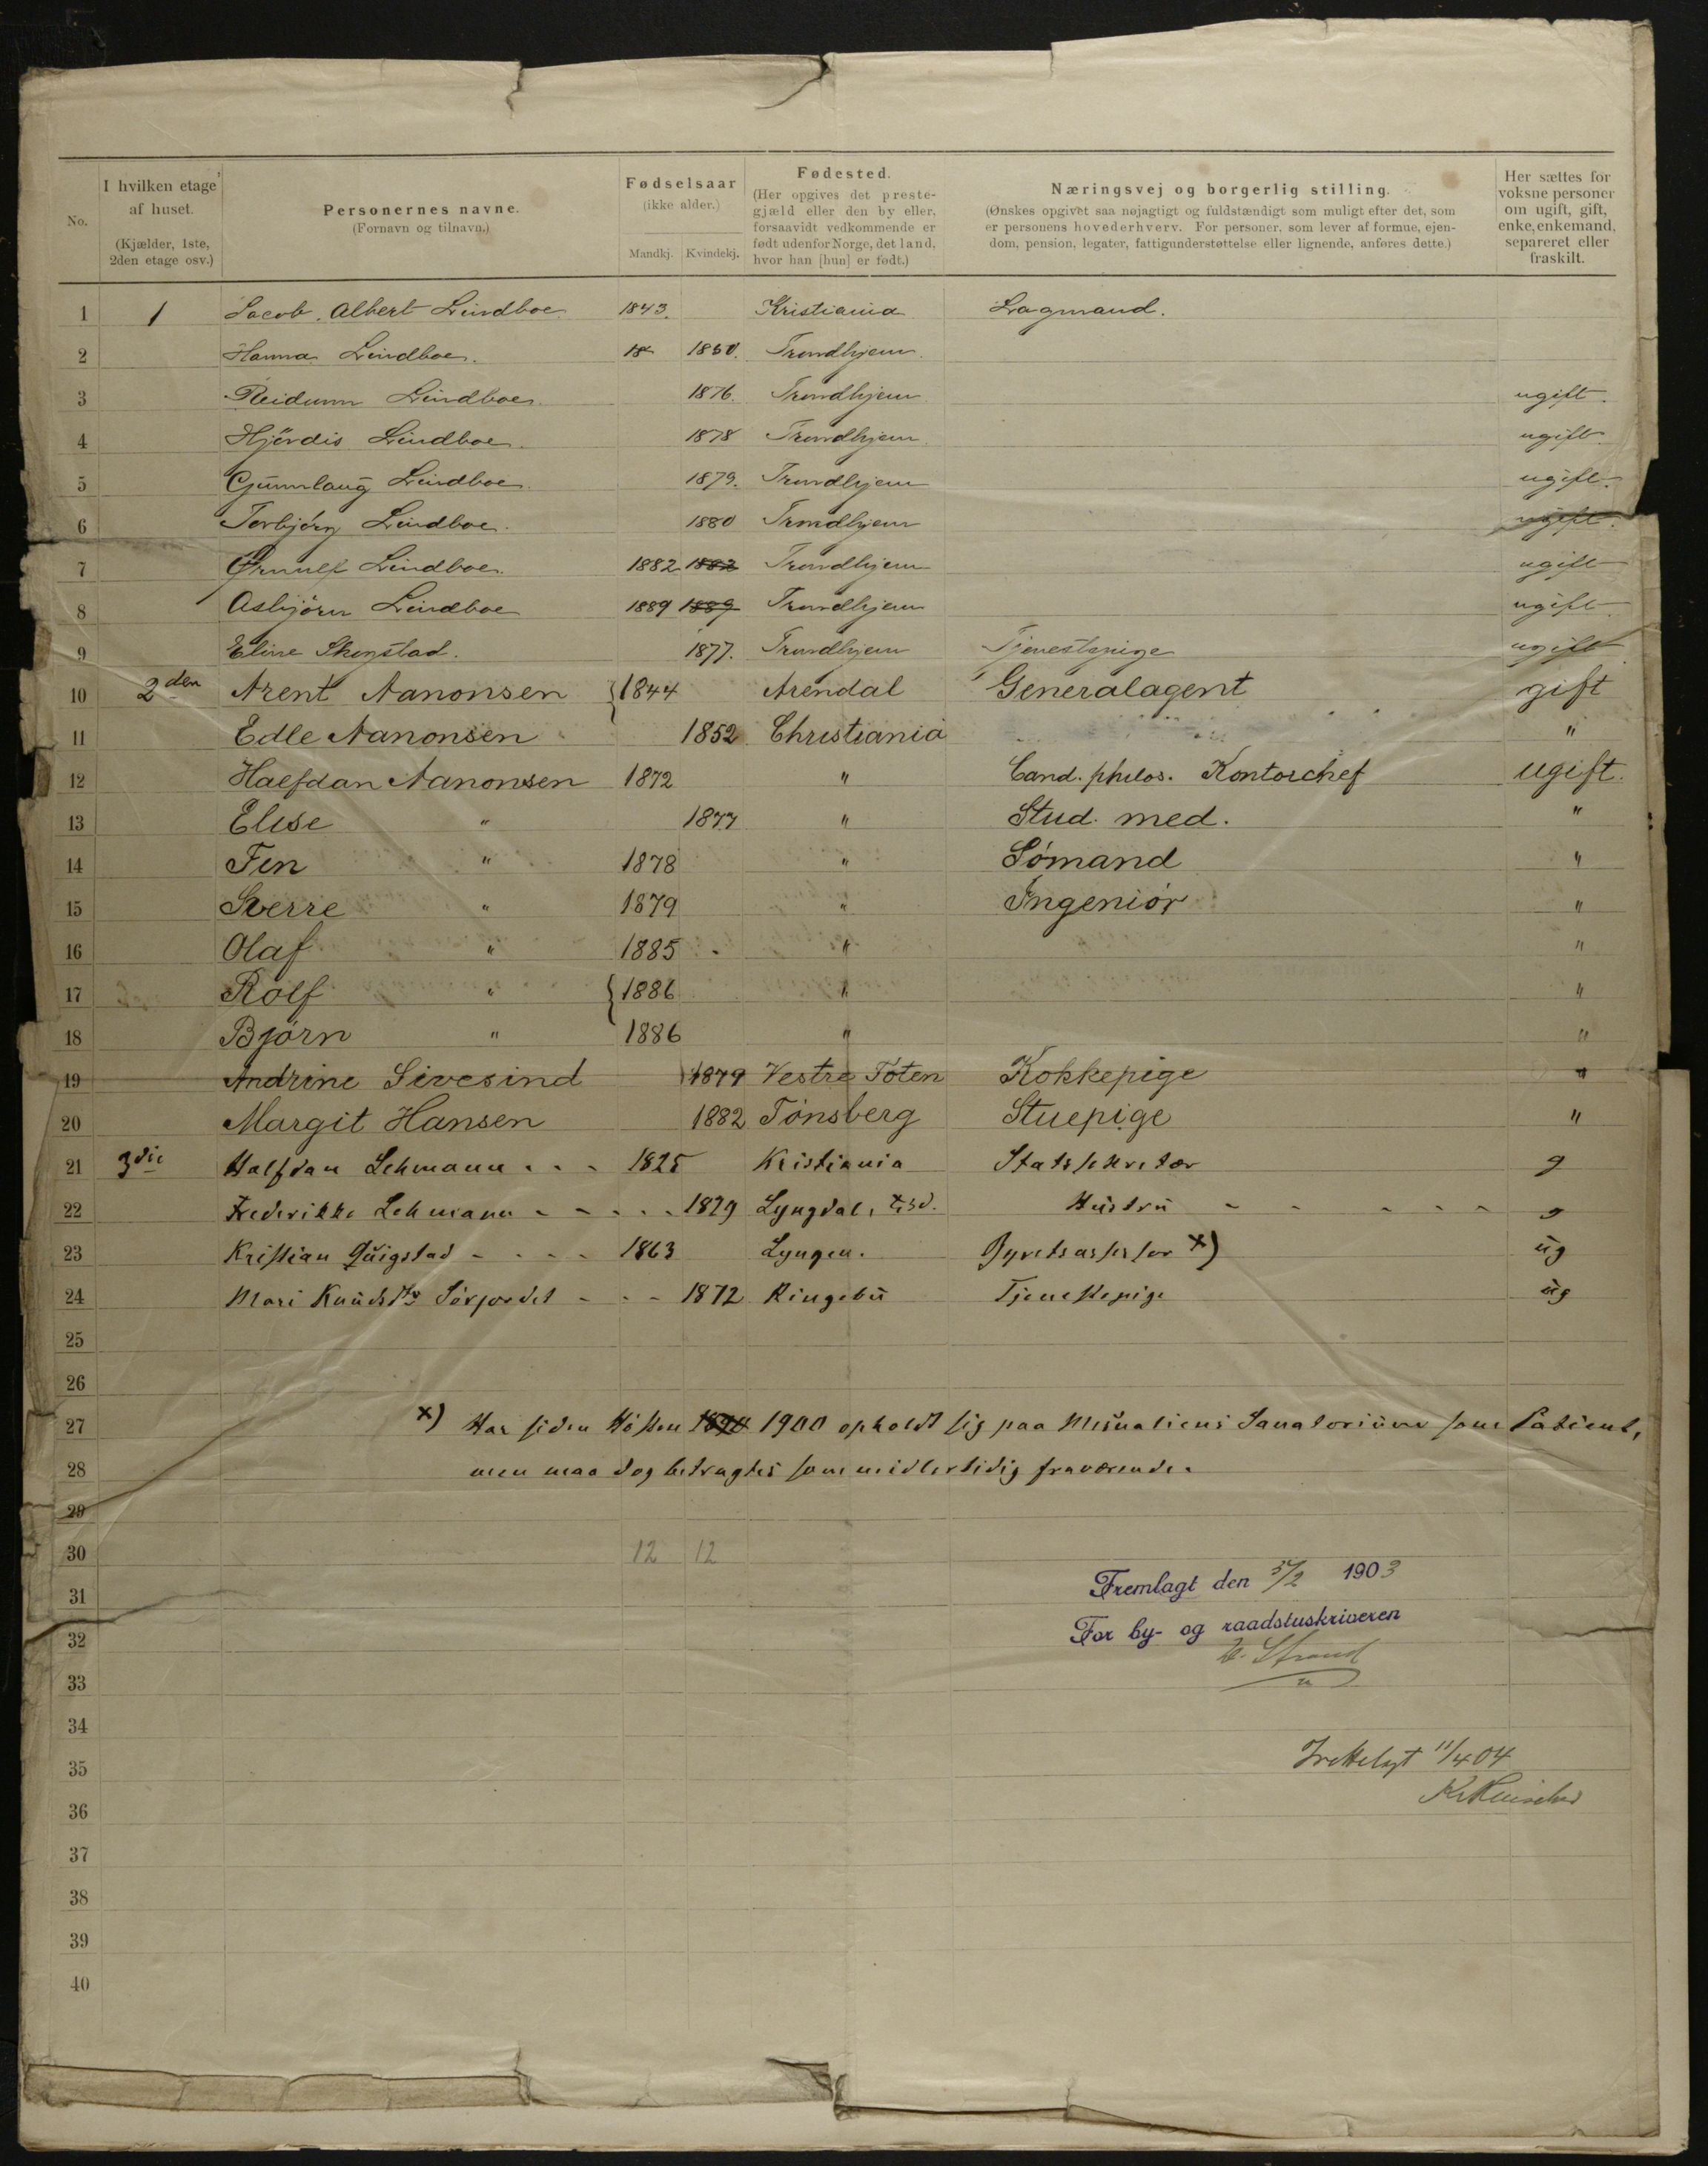 No.
I hvilken etage af huset.
(Kjælder, 1ste, 2den etage osv.)
Personernes navne.
(Fornavn og tilnavn.)
Fødselsaar
(ikke alder.)
Mandkj. Kvindekj.
Fødested.
(Her opgives det prestegjæld eller den by eller, forsaavidt vedkommende er født udenfor Norge, det land, hvor han [hun] er født.)
Næringsvej og borgerlig stilling.
(Ønskes opgivet saa nøjagtigt og fuldstændigt som muligt efter det, som er personens hovederhverv. For personer, som lever af formue, ejendom, pension, legater, fattigunderstøttelse eller lignende, anføres dette.)
Her sættes for voksne personer om ugift, gift, enke, enkemand, separeret eller fraskilt.
1 1 Jacob. Albert Lindboe 1843. Kristiania Lagmand.
2 Hanna Lindboe. 18 1850. Trondhjem.
3 Reidunn Lindboe. 1876. Trondhjem ugift.
4 Hjördis Lindboe. 1878 Trondhjem. ugift.
5 Gunnlaug Lindboe. 1879. Trondhjem ugift.
6 Torbjörg Lindboe. 1880 Trondhjem ugift.
7 Ørnulf Lindboe. 1882 1882 Trondhjem ugift
8 Asbjörn Lindboe 1889 1889 Trondhjem ugift.
9 Eline Skogstad. 1877. Trondhjem Tjenestepige ugift.
10 2den Arent Aanonsen 1844 Arendal Generalagent gift
11 Edle Aanonsen 1852 Christiania "
12 Halfdan Aanonsen 1872 " Cand. philos. Kontorchef ugift.
13 Elise " 1877 " Stud. med. "
14 Fin " 1878 " Sömand "
15 Sverre " 1879 " Ingeniör "
16 Olaf " 1885 " "
17 Rolf " 1886 " "
18 Bjórn " 1886 " "
19 Andrine Sivesind 1879 Vestre Toten Kokkepige "
20 Margit Hansen 1882 Tónsberg Stuepige "
21 3die Halfdan Lehmann . . . 1825 Kristiania Statssekretær g
22 Frederikke Lehmann - - . . . 1829 Lyngdal, Hustru - - - - - g
23 Kristian Qvigstad - . . . 1863 Lyngen. Byretsassessor x) ug
24 Mari Knudsdtr - . - 1872 Ringebu Tjenestepige ug
25
26
27 x) Har siden Høsten 1900 opholdt sig paa Mesnaliens Sanatorium som Patient,
28 men maa dog betragtes som midlertidig fraværende.
29
30 12 12
31 Fremlagt den 5/2 1903
32 For by- og raadstuskriveren
Strand
33
34
35 11/4 04
36
37
38
39
40